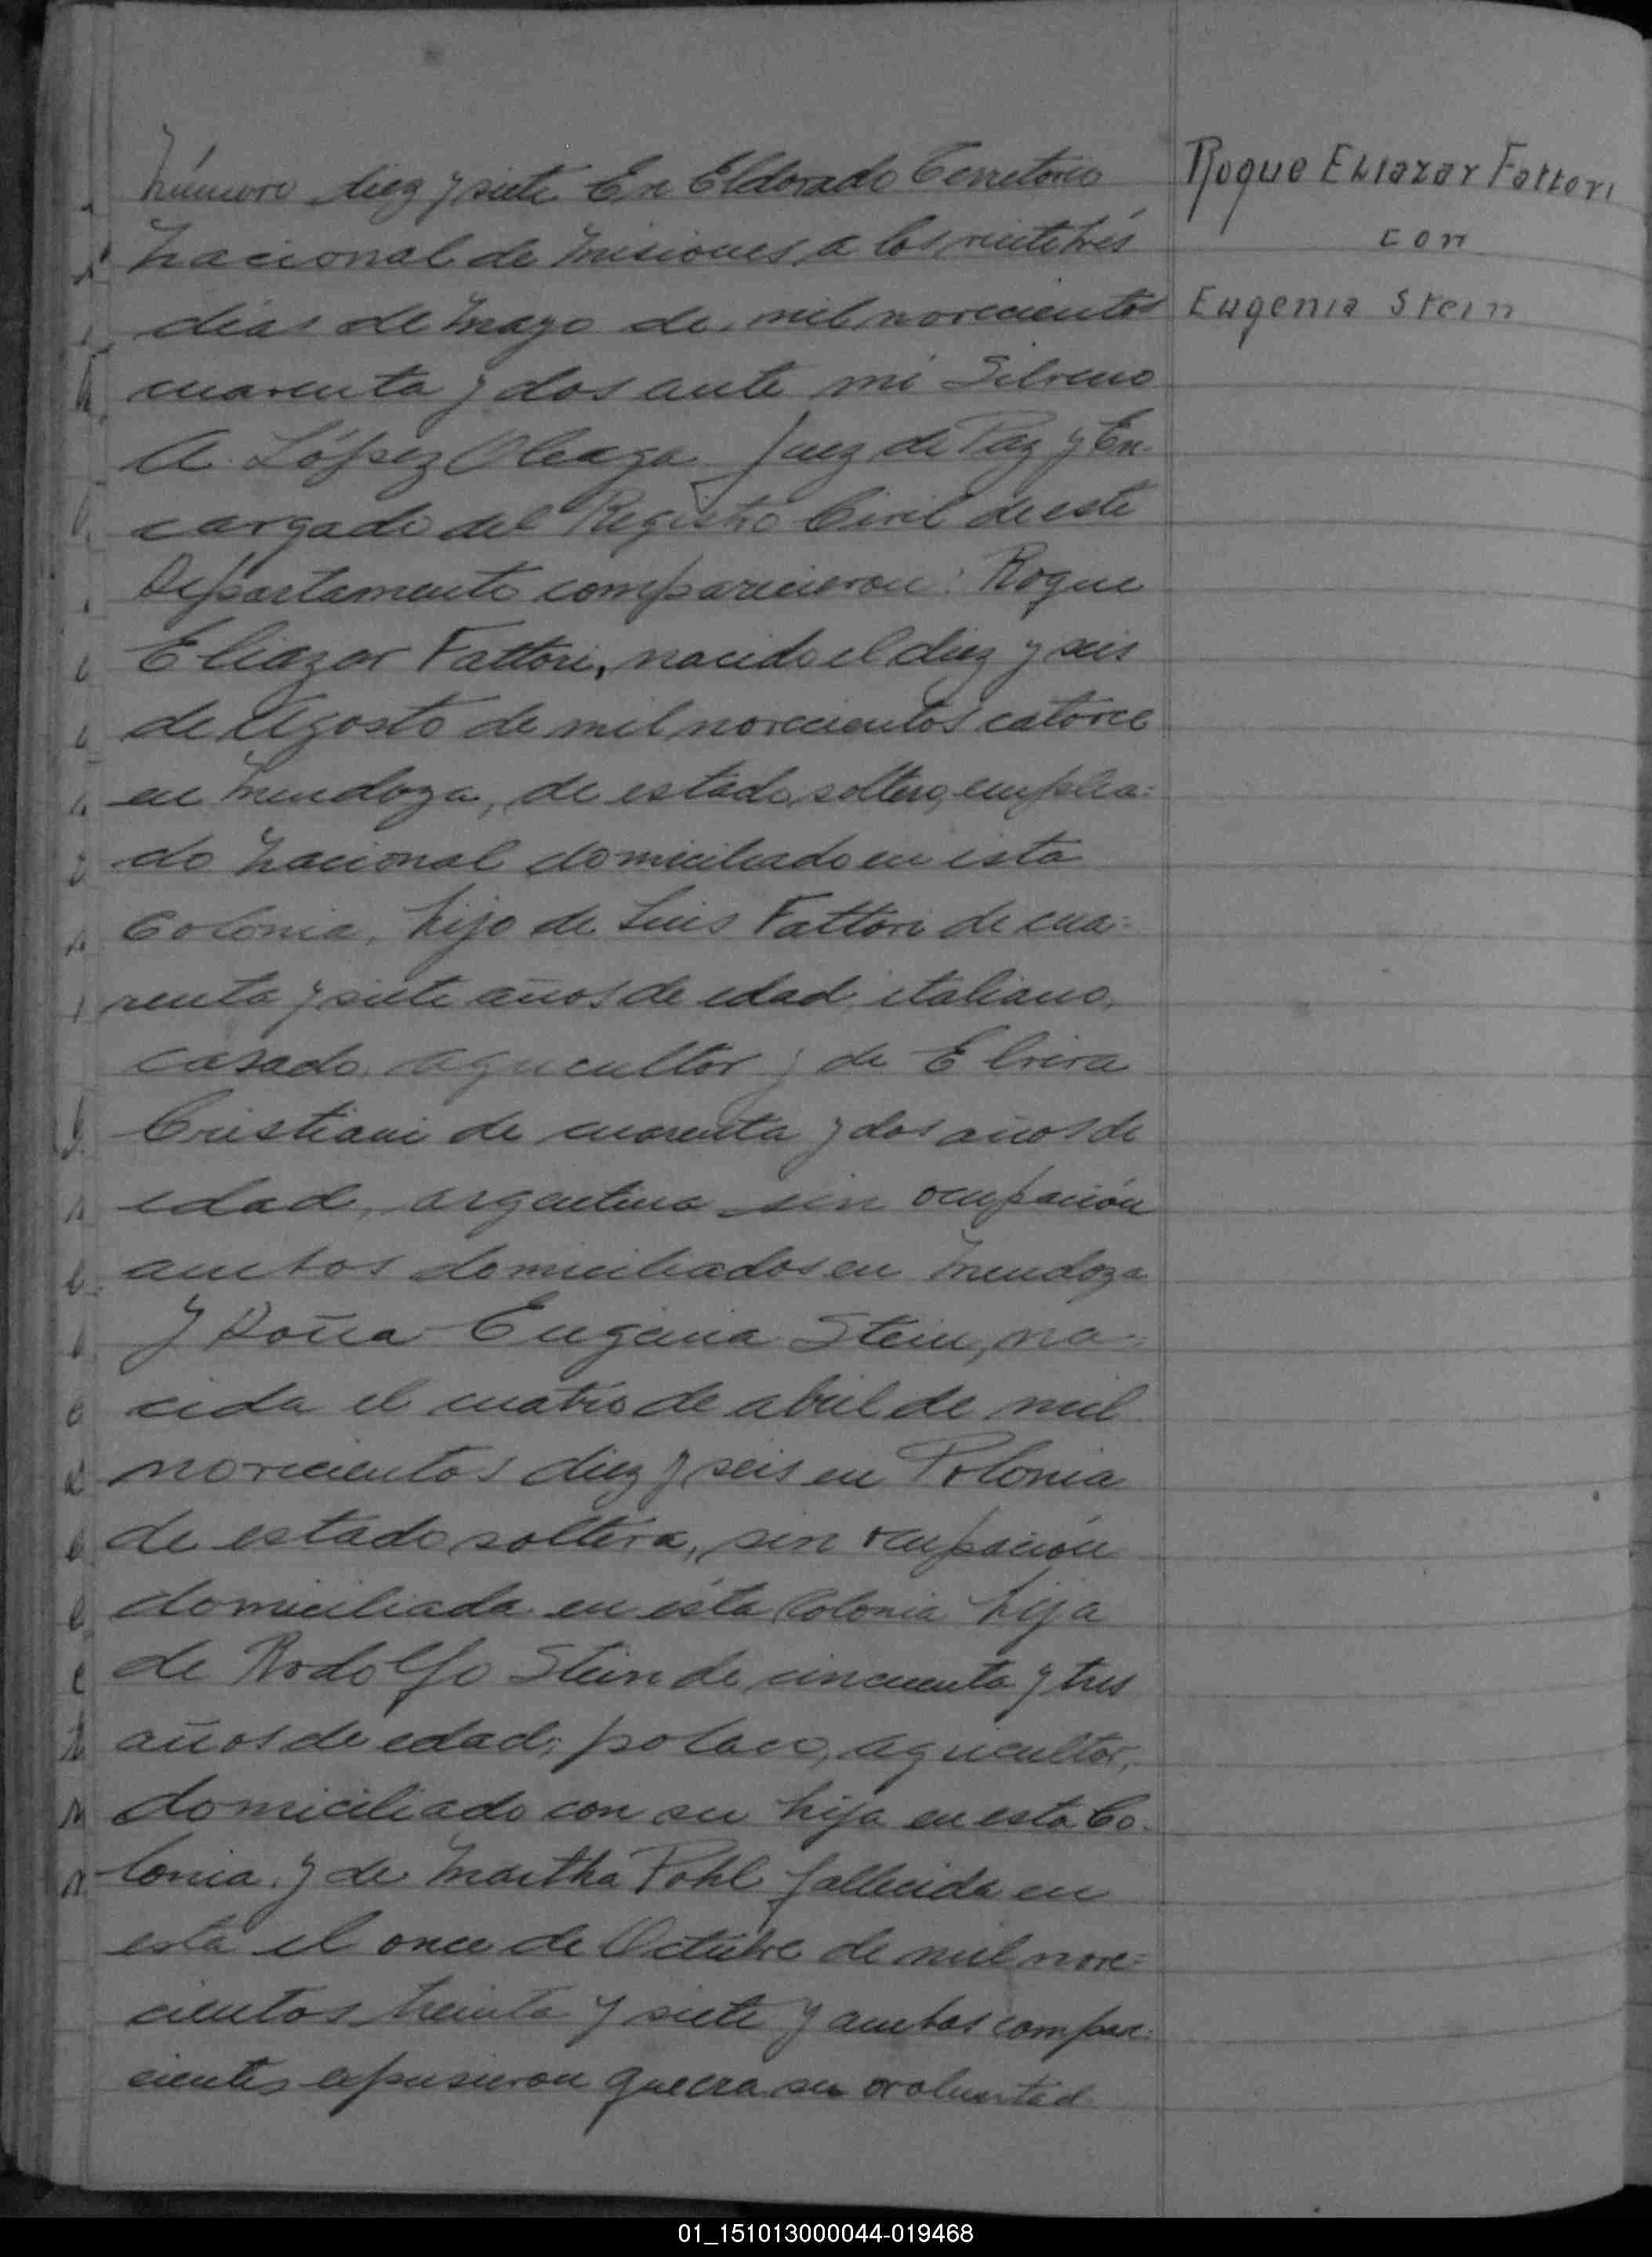 Número diez y siete En Eldorado Territorio
Nacional de Misiones, a los veintitrés
días de Mayo de mil novecientos
cuarenta y dos ante mí Silveno
A. López Oleaga Juez de Paz y En-
cargado del Registro Civil de este
Departamento comparecieron: Roque
Eliazar Fattori, nacido el diez y seis
de Agosto de mil novecientos catorce
en Mendoza, de estado soltero, emplea=
do Nacional domiciliado en esta
Colonia, hijo de Luis Fattori de cua=
renta y siete años de edad, italiano,
casado, agricultor y de Elvira
Cristiani de cuarenta y dos años de
edad, argentina sin ocupación
ambos domiciliados en Mendoza
Y Doña Eugenia Stein, na=
cida el cuatro de abril de mil
novecientos diez y seis en Polonia
de estado soltera, sin ocupación
domiciliada en ésta Colonia hija
de Rodolfo Stein de cincuenta y tres
años de edad, polaco, agricultor,
domiciliado con su hija en esta Co-
lonia. y de Martha Pohl fallecida en
esta el once de Octubre de mil nove=
cientos treinta y siete y ambos compare=
cientes expusieron que era su voluntad
Roque Eliazar Fattori
con
Eugenia Stein
01_151013000044-019468